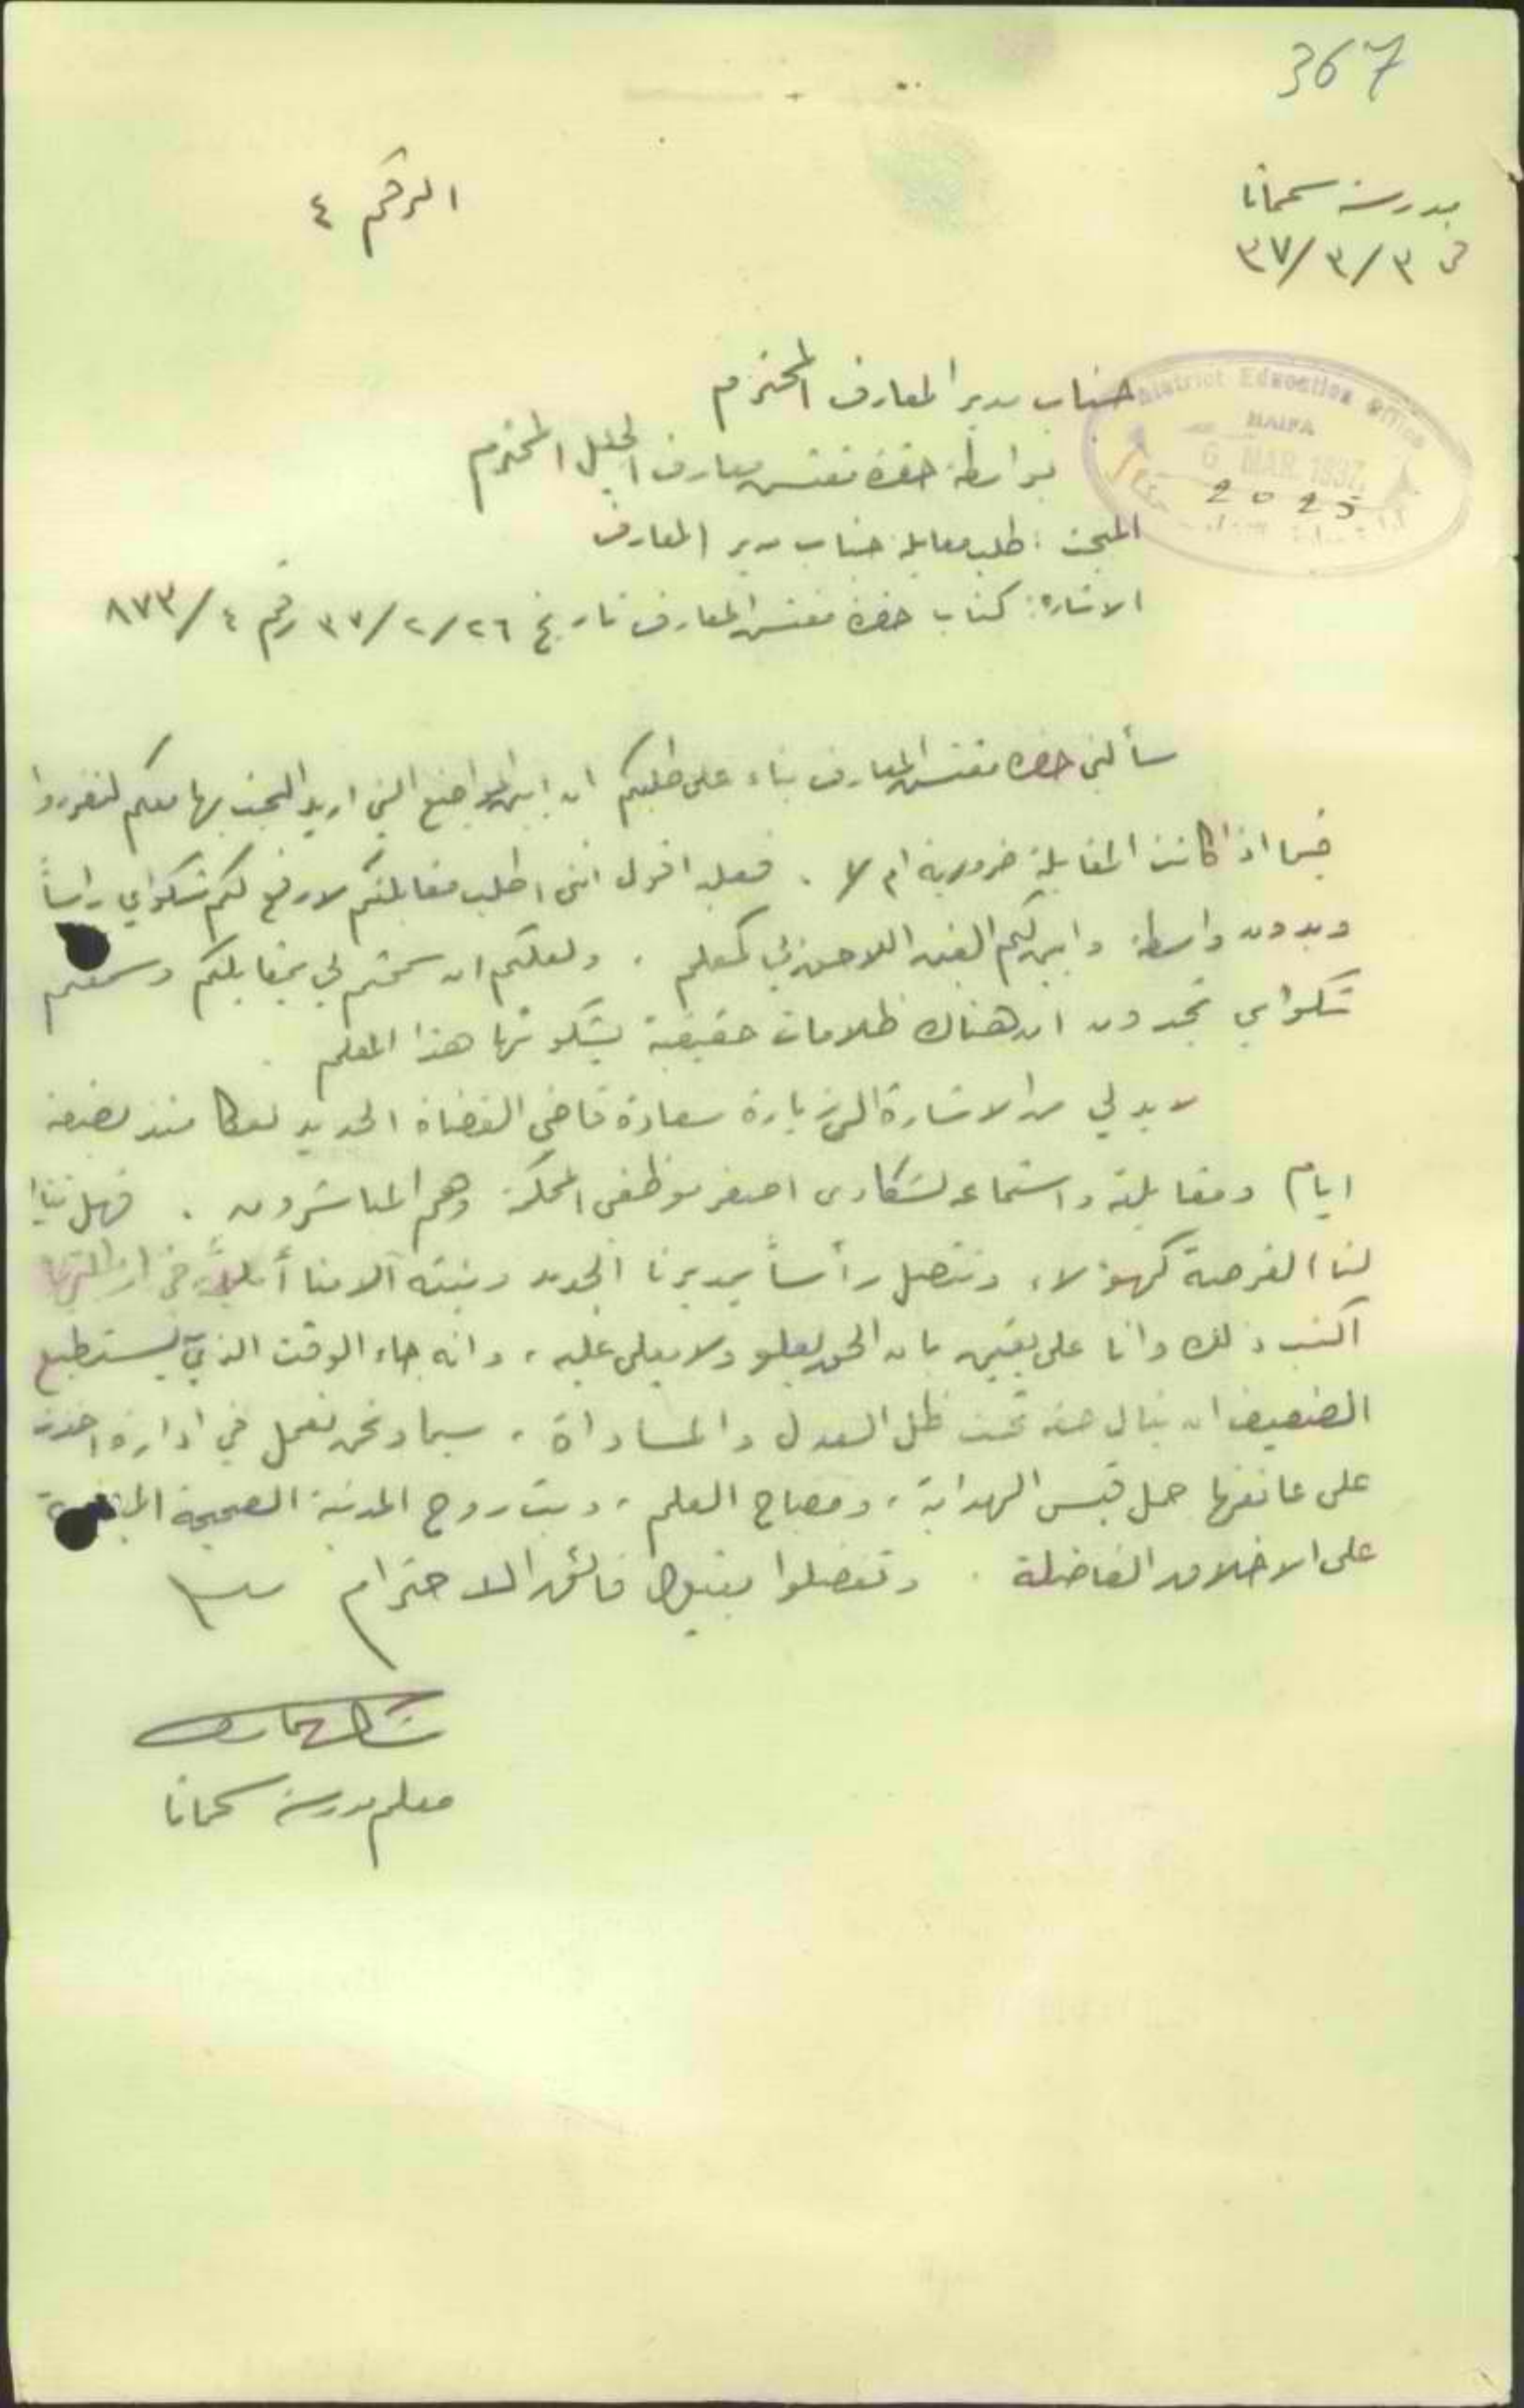 367
مدرسة سحماتا
في ٣/٣/٣٧
الرقم ٤
District Education Office
HAIFA
6 MAR 1937
2025
جناب مدير المعارف المحترم
بواسطة حضرة مفتش معارف الجليل المحترم
المبحث : طلب مقابلة جناب مدير المعارف
الاشارة : كتاب حضرة مفتش المعارف تاريخ ٢٦/٢/٣٧ رقم ٤/٨٧٣
سألني حضرة مفتش المعارف بناء على طلبكم ان ابين المواضيع التي اريد البحث بها معكم لتقرروا
فيما اذا كانت المقابلة ضرورية ام لا . فعليه اقول انني اطلب مقابلتكم لارفع لكم شكواي رأساً
وبدون واسطة وابين لكم الغبن اللاحق بي كمعلم . ولعلكم ان سمحتم لي بمقابلتكم وسمعتم
شكواي تجدون ان هناك ظلامات حقيقية يشكو منها هذا المعلم
لا بد لي من الاشارة الى زيارة سعادة قاضي القضاة الجديد لعكا منذ بضعة
ايام ومقابلته واستماعه لشكاوى اصغر موظفي المحكمة وهم المباشرون . فهل تتاح
لنا الفرصة كهؤلاء ، ونتصل رأساً بمديرنا الجديد ونبثه آلامنا أملاً في ازالتها
اكتب ذلك وانا على يقين بان الحق يعلو ولا يعلى عليه ، وانه جاء الوقت الذي يستطيع
الضعيف ان ينال حقه تحت ظل العدل والمساواة ، سيما ونحن نعمل في ادارة اخذت
على عاتقها حمل قبس الهداية ، ومصباح العلم ، وبث روح المدنية الصحيحة
على الاخلاق الفاضلة . وتفضلوا بقبول فائق الاحترام
معلم مدرسة سحماتا